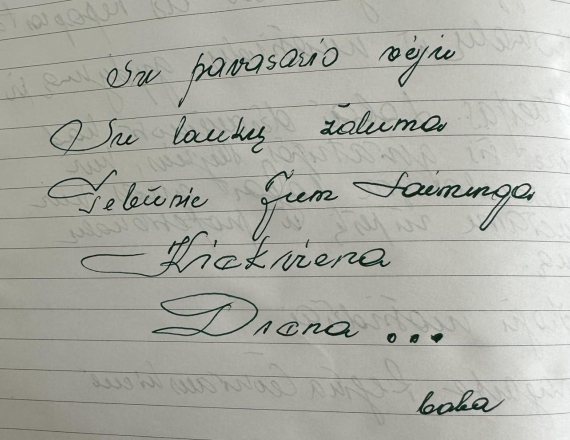 Su pavasario vėju
Su laukų žaluma
Tebūnie Jum Laiminga
Kiekviena
Diena ...
baba